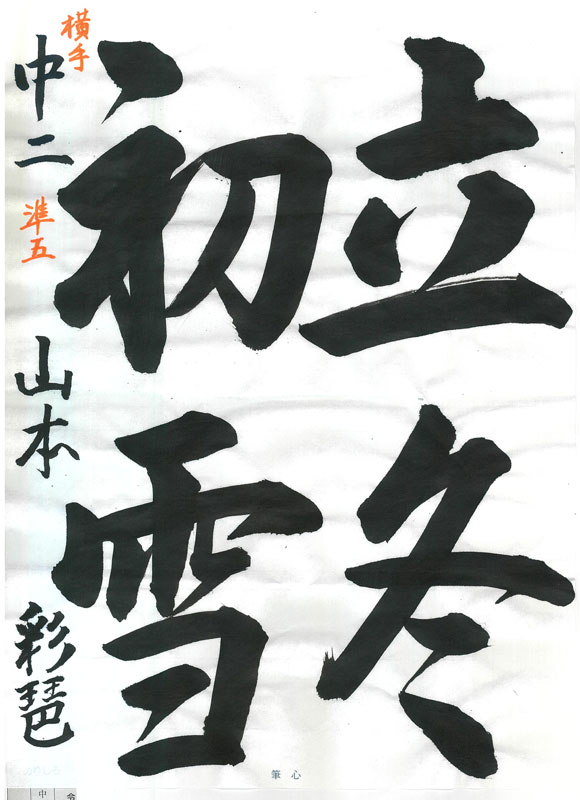 立冬
初雪
横手
中二 準五 山本 彩琶
筆心
中